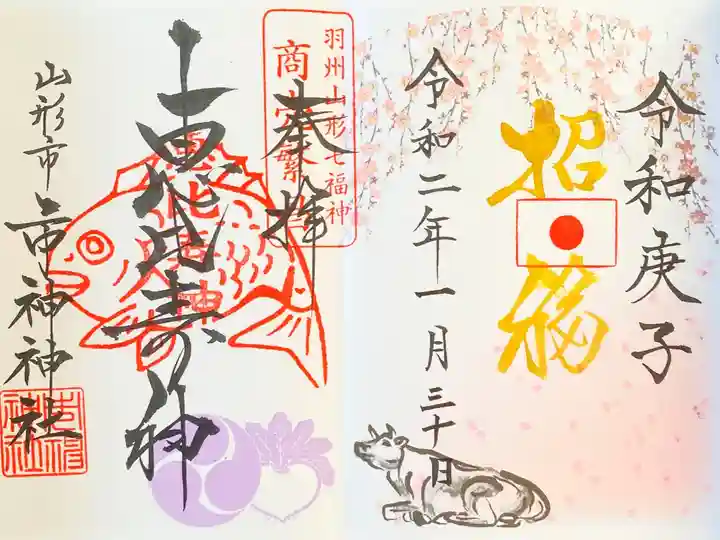 令和庚子
招福
令和二年一月三十日
羽州山形七福神
商売繁
奉拝
恵比寿神
山形市 市神神社